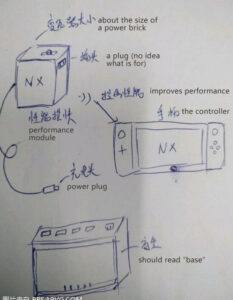 变压器大小 about the size of
a power brick
插头 a plug (no idea
what is for)
NX
性能模块
performance
module
拉高性能 improves performance
手柄 the controller
NX
充电头
power plug
should read "base"